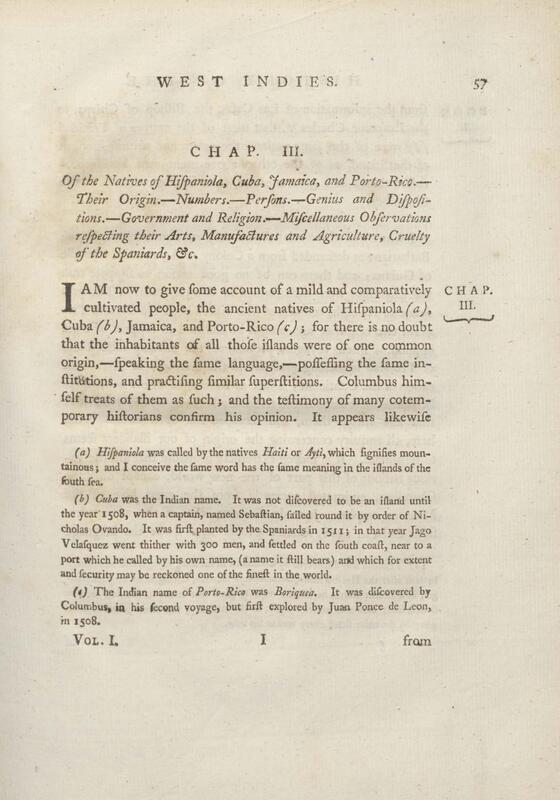 WEST INDIES. 57
CHAP. III.
Of the Natives of Hiſpaniola, Cuba, Jamaica, and Porto-Rico.—
Their Origin.—Numbers.—Perſons.—Genius and Diſpoſi-
tions.—Government and Religion.—Miſcellaneous Obſervations
reſpecting their Arts, Manufactures and Agriculture, Cruelty
of the Spaniards, &c.
I AM now to give ſome account of a mild and comparatively
cultivated people, the ancient natives of Hiſpaniola (a),
Cuba (b), Jamaica, and Porto-Rico (c); for there is no doubt
that the inhabitants of all thoſe iſlands were of one common
origin,—ſpeaking the ſame language,—poſſeſſing the ſame in-
ſtitutions, and practiſing ſimilar ſuperſtitions. Columbus him-
ſelf treats of them as ſuch; and the teſtimony of many cotem-
porary hiſtorians confirm his opinion. It appears likewiſe
CHAP.
III.
(a) Hiſpaniola was called by the natives Haiti or Ayti, which ſignifies moun-
tainous; and I conceive the ſame word has the ſame meaning in the iſlands of the
ſouth ſea.
(b) Cuba was the Indian name. It was not diſcovered to be an iſland until
the year 1508, when a captain, named Sebaſtian, ſailed round it by order of Ni-
cholas Ovando. It was firſt planted by the Spaniards in 1511; in that year Jago
Velaſquez went thither with 300 men, and ſettled on the ſouth coaſt, near to a
port which he called by his own name, (a name it ſtill bears) and which for extent
and ſecurity may be reckoned one of the fineſt in the world.
(c) The Indian name of Porto-Rico was Boriquea. It was diſcovered by
Columbus, in his ſecond voyage, but firſt explored by Juan Ponce de Leon,
in 1508.
VOL. I. I from